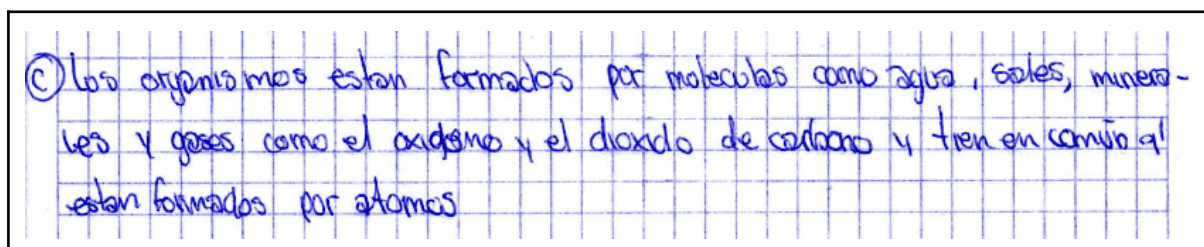 C) los organismos estan formados por moleculas como agua, sales, minera-
les y gases como el oxigeno y el dioxido de carbono y tienen en común q'
estan formados por atomos